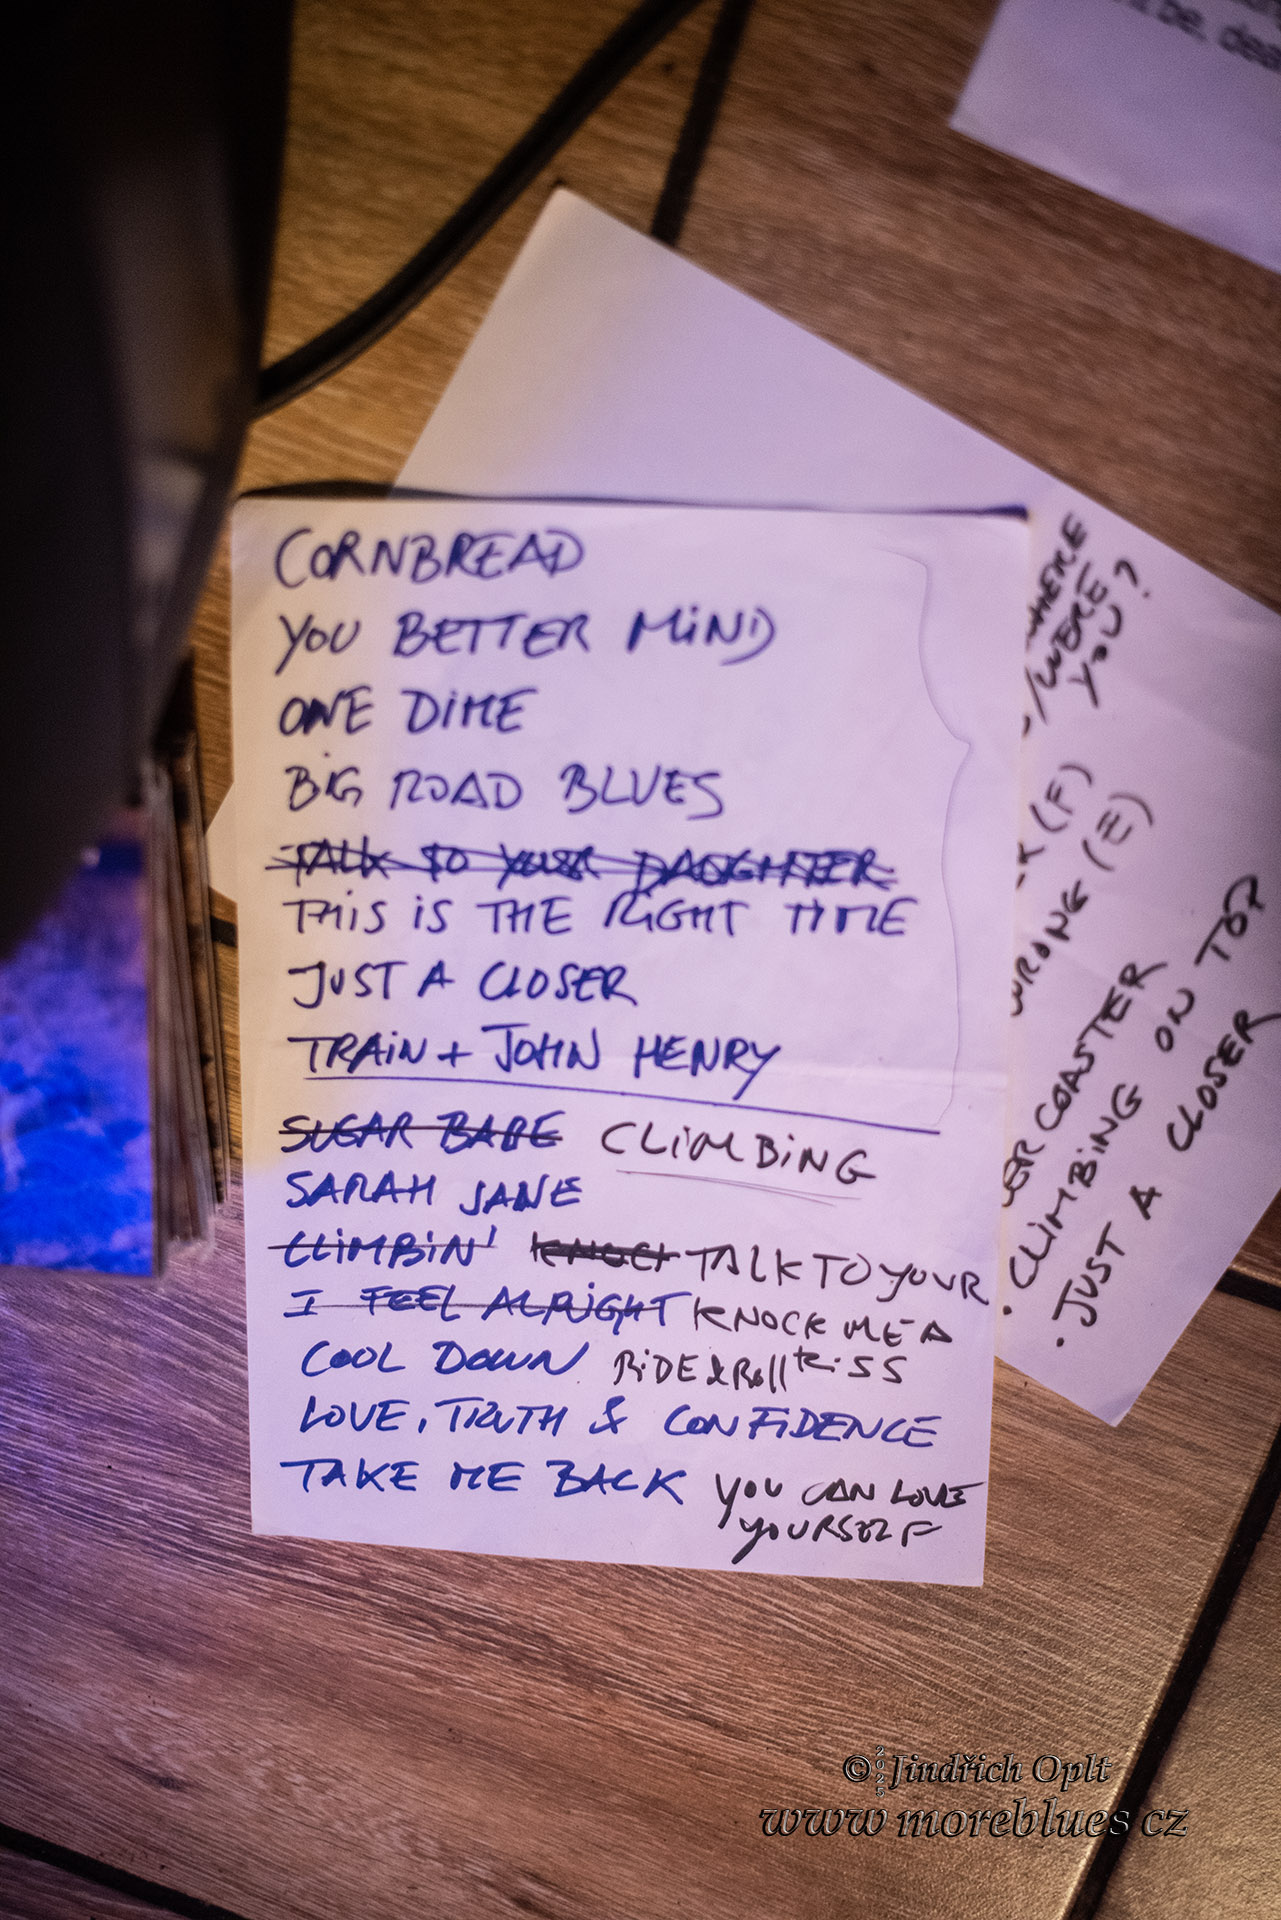 be, dea
CORNBREAD
YOU BETTER MIND
ONE DIME
BIG ROAD BLUES
TALK TO YOUR DAUGHTER
THIS IS THE RIGHT TIME
JUST A CLOSER
TRAIN + JOHN HENRY
SUGAR BABE CLIMBING
SARAH JANE
CLIMBIN' KNOCK TALK TO YOUR
I FEEL ALRIGHT KNOCK ME A
COOL DOWN RIDE & Roll KISS
LOVE, TRUTH & CONFIDENCE
TAKE ME BACK YOU CAN LOVE
YOURSELF
HERE
/WERE
YOU?
R (F)
WRONG (E)
ER COASTER
· CLIMBING ON TOP
· JUST A CLOSER
© 2025 Jindřich Oplt
www moreblues cz